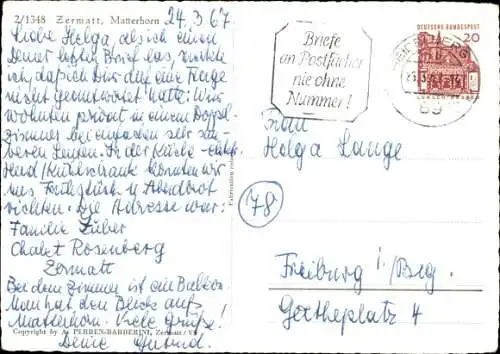 2/1348 Zermatt, Matterhorn 24.3.67.
Liebe Helga, als ich einen
Deiner letzten Brief las, merkte
ich, daß ich Dir auf eine Frage
nicht geantwortet hatte: Wir
wohnten privat in einem Doppel-
zimmer bei einfachen sehr sau-
beren Leuten. In der Küche
Herd/Kühlschrank konnten wir
uns Frühstück u Abendbrot
richten. Die Adresse war:
Familie Zuber
Chalet Rosenberg
Zermatt
Bei dem Zimmer ist ein Balkon.
Man hat den Blick aufs
Matterhorn. Viele Grüße!
Deine Gertrud.
Copyright by A. PERREN-BARBERINI, Zermatt / VS
Briefe
an Postfächer
nie ohne
Nummer!
DEUTSCHE BUNDESPOST
20
89
Frau
Helga Lange
78
Freiburg i./Brg.
Goetheplatz 4